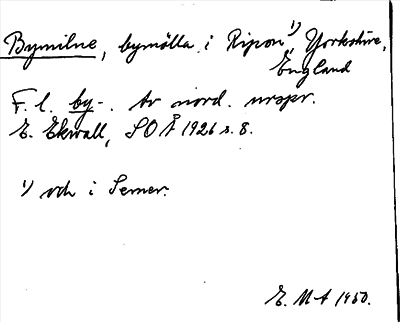 Bymilne, bymölla i Ripon ¹⁾, Yorkshire,
England
F. l. by-. Av nord. urspr.
E. Ekwall, SOÅ 1926 s. 8.
¹⁾ och i Semer.
E. M-t 1950.